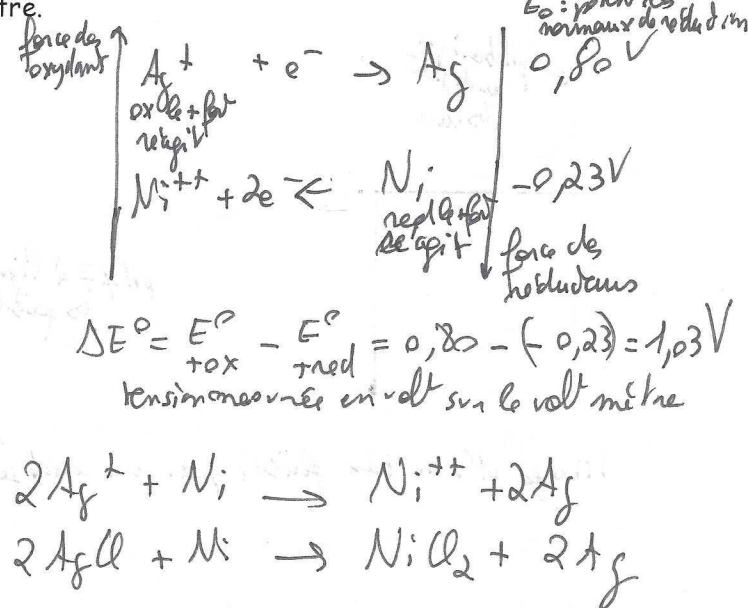 tre.
E₀ : 
normaux de réduction
force des
oxydant
Ag⁺ + e⁻ → Ag 0,80 V
ox le + fort
réagit
Ni⁺⁺ + 2e⁻ ← Ni -0,23 V
red le + fort
réagit
force des
réducteurs
ΔE° = E°+ox - E°+red = 0,80 - (-0,23) = 1,03 V
tension mesurée en volt sur le volt mètre
2Ag⁺ + Ni → Ni⁺⁺ + 2Ag
2AgCl + Ni → NiCl₂ + 2Ag